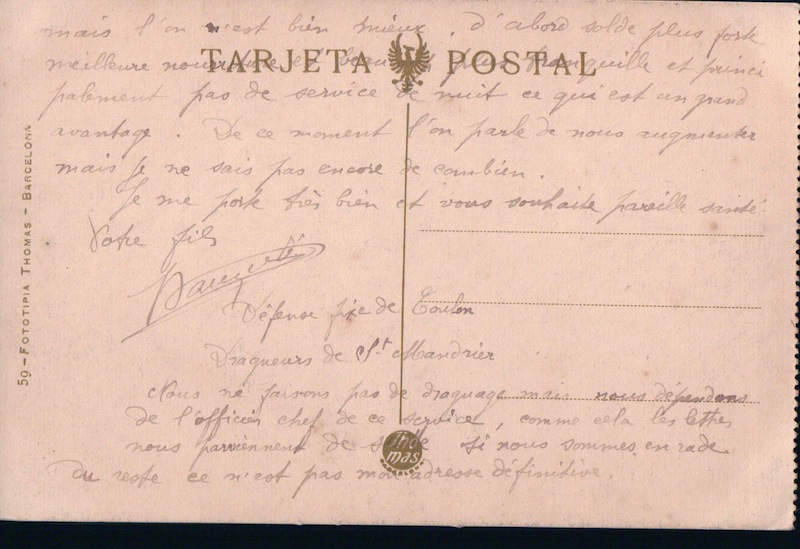 mais l'on n'est bien mieux. d'abord solde plus forte
TARJETA POSTAL
meilleure nourriture et plus tranquille et princi
palement pas de service de nuit ce qui est un grand
avantage. De ce moment l'on parle de nous augmenter
mais je ne sais pas encore de combien.
Je me porte très bien et vous souhaite pareille santé.
Votre fils
Défense fixe de Toulon
Dragueurs de St Mandrier
Nous ne faisons pas de draguage mais nous dépendons
de l'officier chef de ce service, comme cela les lettres
nous parviennent de suite si nous sommes en rade
Du reste ce n'est pas mon adresse définitive.
59 - FOTOTIPIA THOMAS - BARCELONA